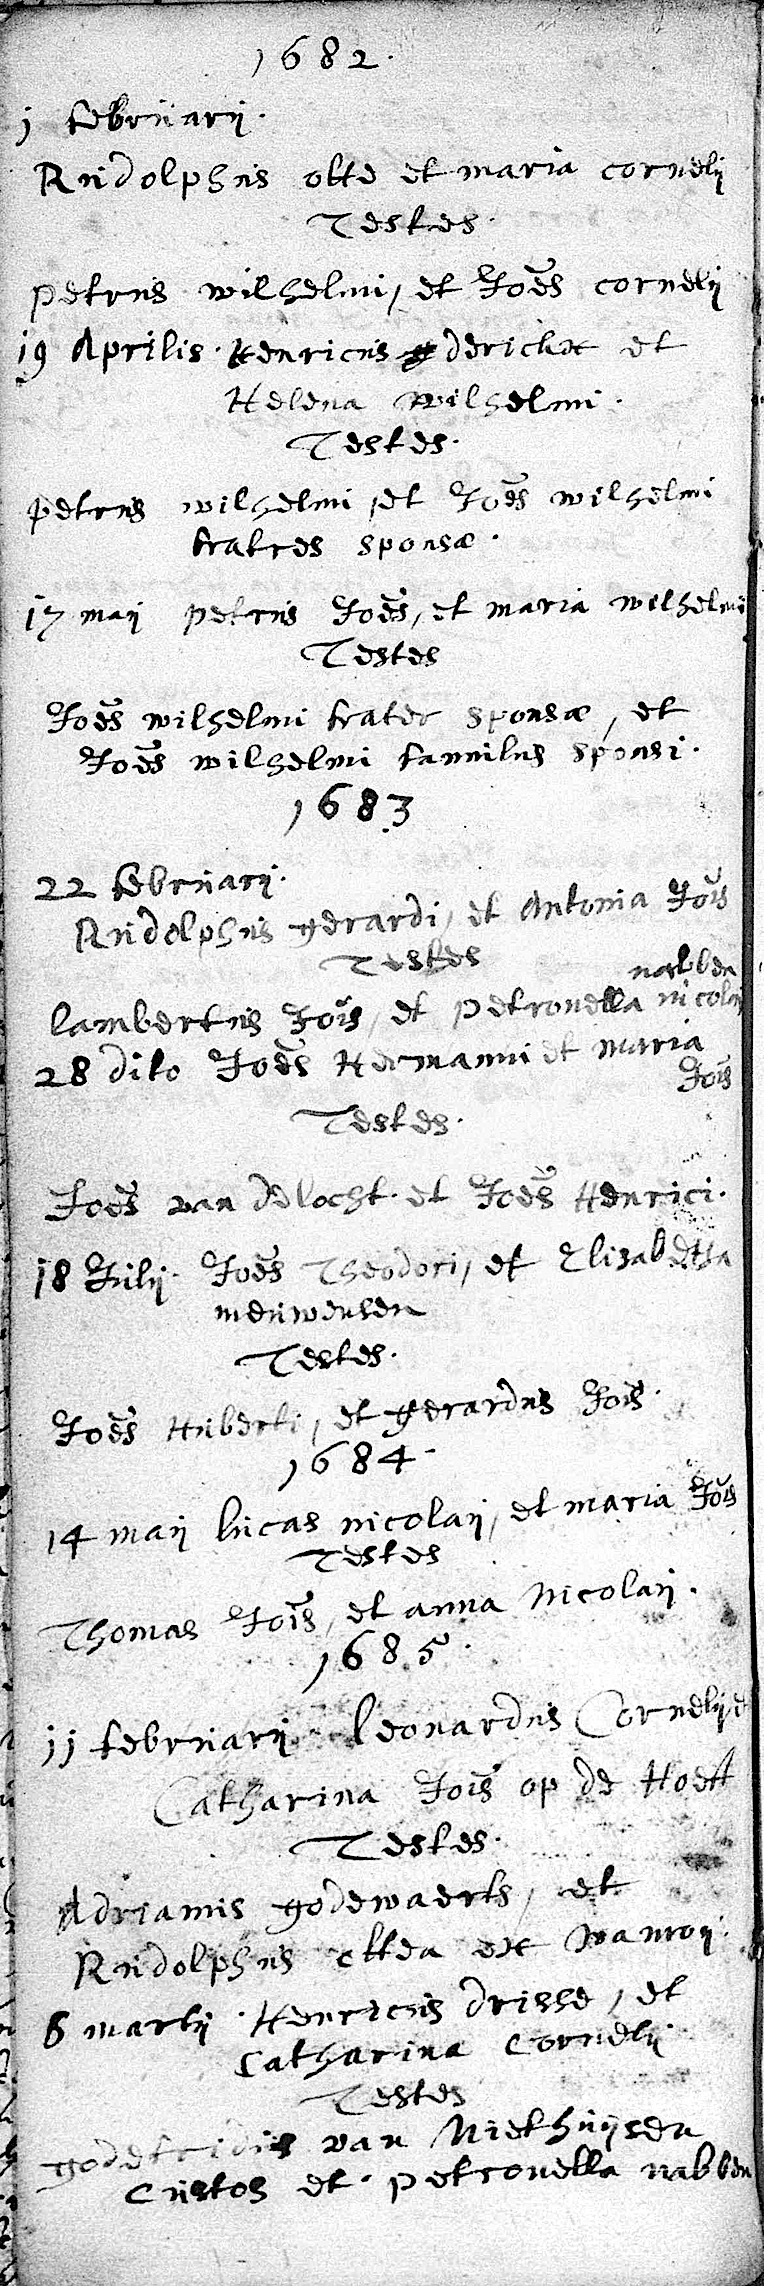 1682.
1 februarij.
Rudolphus otte et maria cornelij
Testes.
petrus wilhelmi, et Joēs cornelij
19 Aprilis. Henricus derickx et
Helena wilhelmi.
Testes.
petrus wilhelmi, et Joēs wilhelmi
fratres sponsæ.
17 maij petrus Joēs, et maria wilhelmi
Testes
Joēs wilhelmi frater sponsæ, et
Joēs wilhelmi famulus sponsi.
1683
22 februarij.
Rudolphus gerardi, et Antonia Joīs
Testes
nabben
lambertus Joīs, et petronella nicolaij
28 dito Joēs Hermanni et maria
Joīs
Testes.
Joēs van de locht. et Joēs Henrici.
18 Julij. Joēs Theodori, et Elisabetha
meuwensen
Testes.
Joēs Huberti, et gerardus Joīs.
1684.
14 maij lucas nicolaij, et maria Joīs
Testes
Thomas Joīs, et anna Nicolaij.
1685.
11 februarij. Leonardus Cornelij et
Catharina Joīs op de Hoeff
Testes.
Adrianus godewaerts, et
Rudolphus otten ex wanroij.
6 martij. Henricus drisse, et
Catharina Cornelij
Testes
godefridus van Niethuijsen
Custos et. petronella nabben